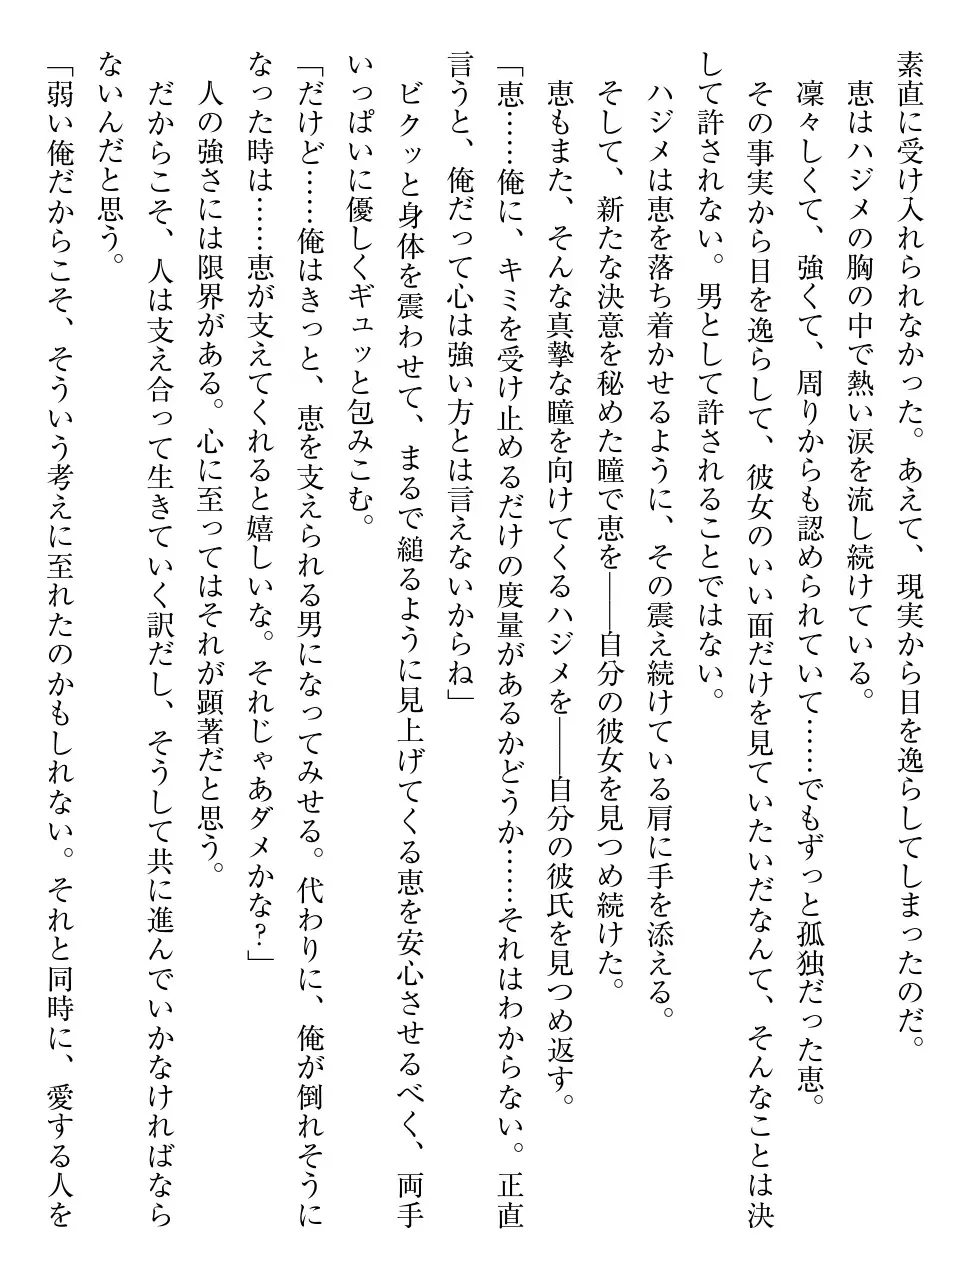 素直に受け入れられなかった。あえて、現実から目を逸らしてしまったのだ。
恵はハジメの胸の中で熱い涙を流し続けている。
凜々しくて、強くて、周りからも認められていて……でもずっと孤独だった恵。
その事実から目を逸らして、彼女のいい面だけを見ていたいだなんて、そんなことは決
して許されない。男として許されることではない。
ハジメは恵を落ち着かせるように、その震え続けている肩に手を添える。
そして、新たな決意を秘めた瞳で恵を――自分の彼女を見つめ続けた。
恵もまた、そんな真摯な瞳を向けてくるハジメを――自分の彼氏を見つめ返す。
「恵……俺に、キミを受け止めるだけの度量があるかどうか……それはわからない。正直
言うと、俺だって心は強い方とは言えないからね」
ビクッと身体を震わせて、まるで縋るように見上げてくる恵を安心させるべく、両手
いっぱいに優しくギュッと包みこむ。
「だけど……俺はきっと、恵を支えられる男になってみせる。代わりに、俺が倒れそうに
なった時は……恵が支えてくれると嬉しいな。それじゃあダメかな?」
人の強さには限界がある。心に至ってはそれが顕著だと思う。
だからこそ、人は支え合って生きていく訳だし、そうして共に進んでいかなければなら
ないんだと思う。
「弱い俺だからこそ、そういう考えに至れたのかもしれない。それと同時に、愛する人を